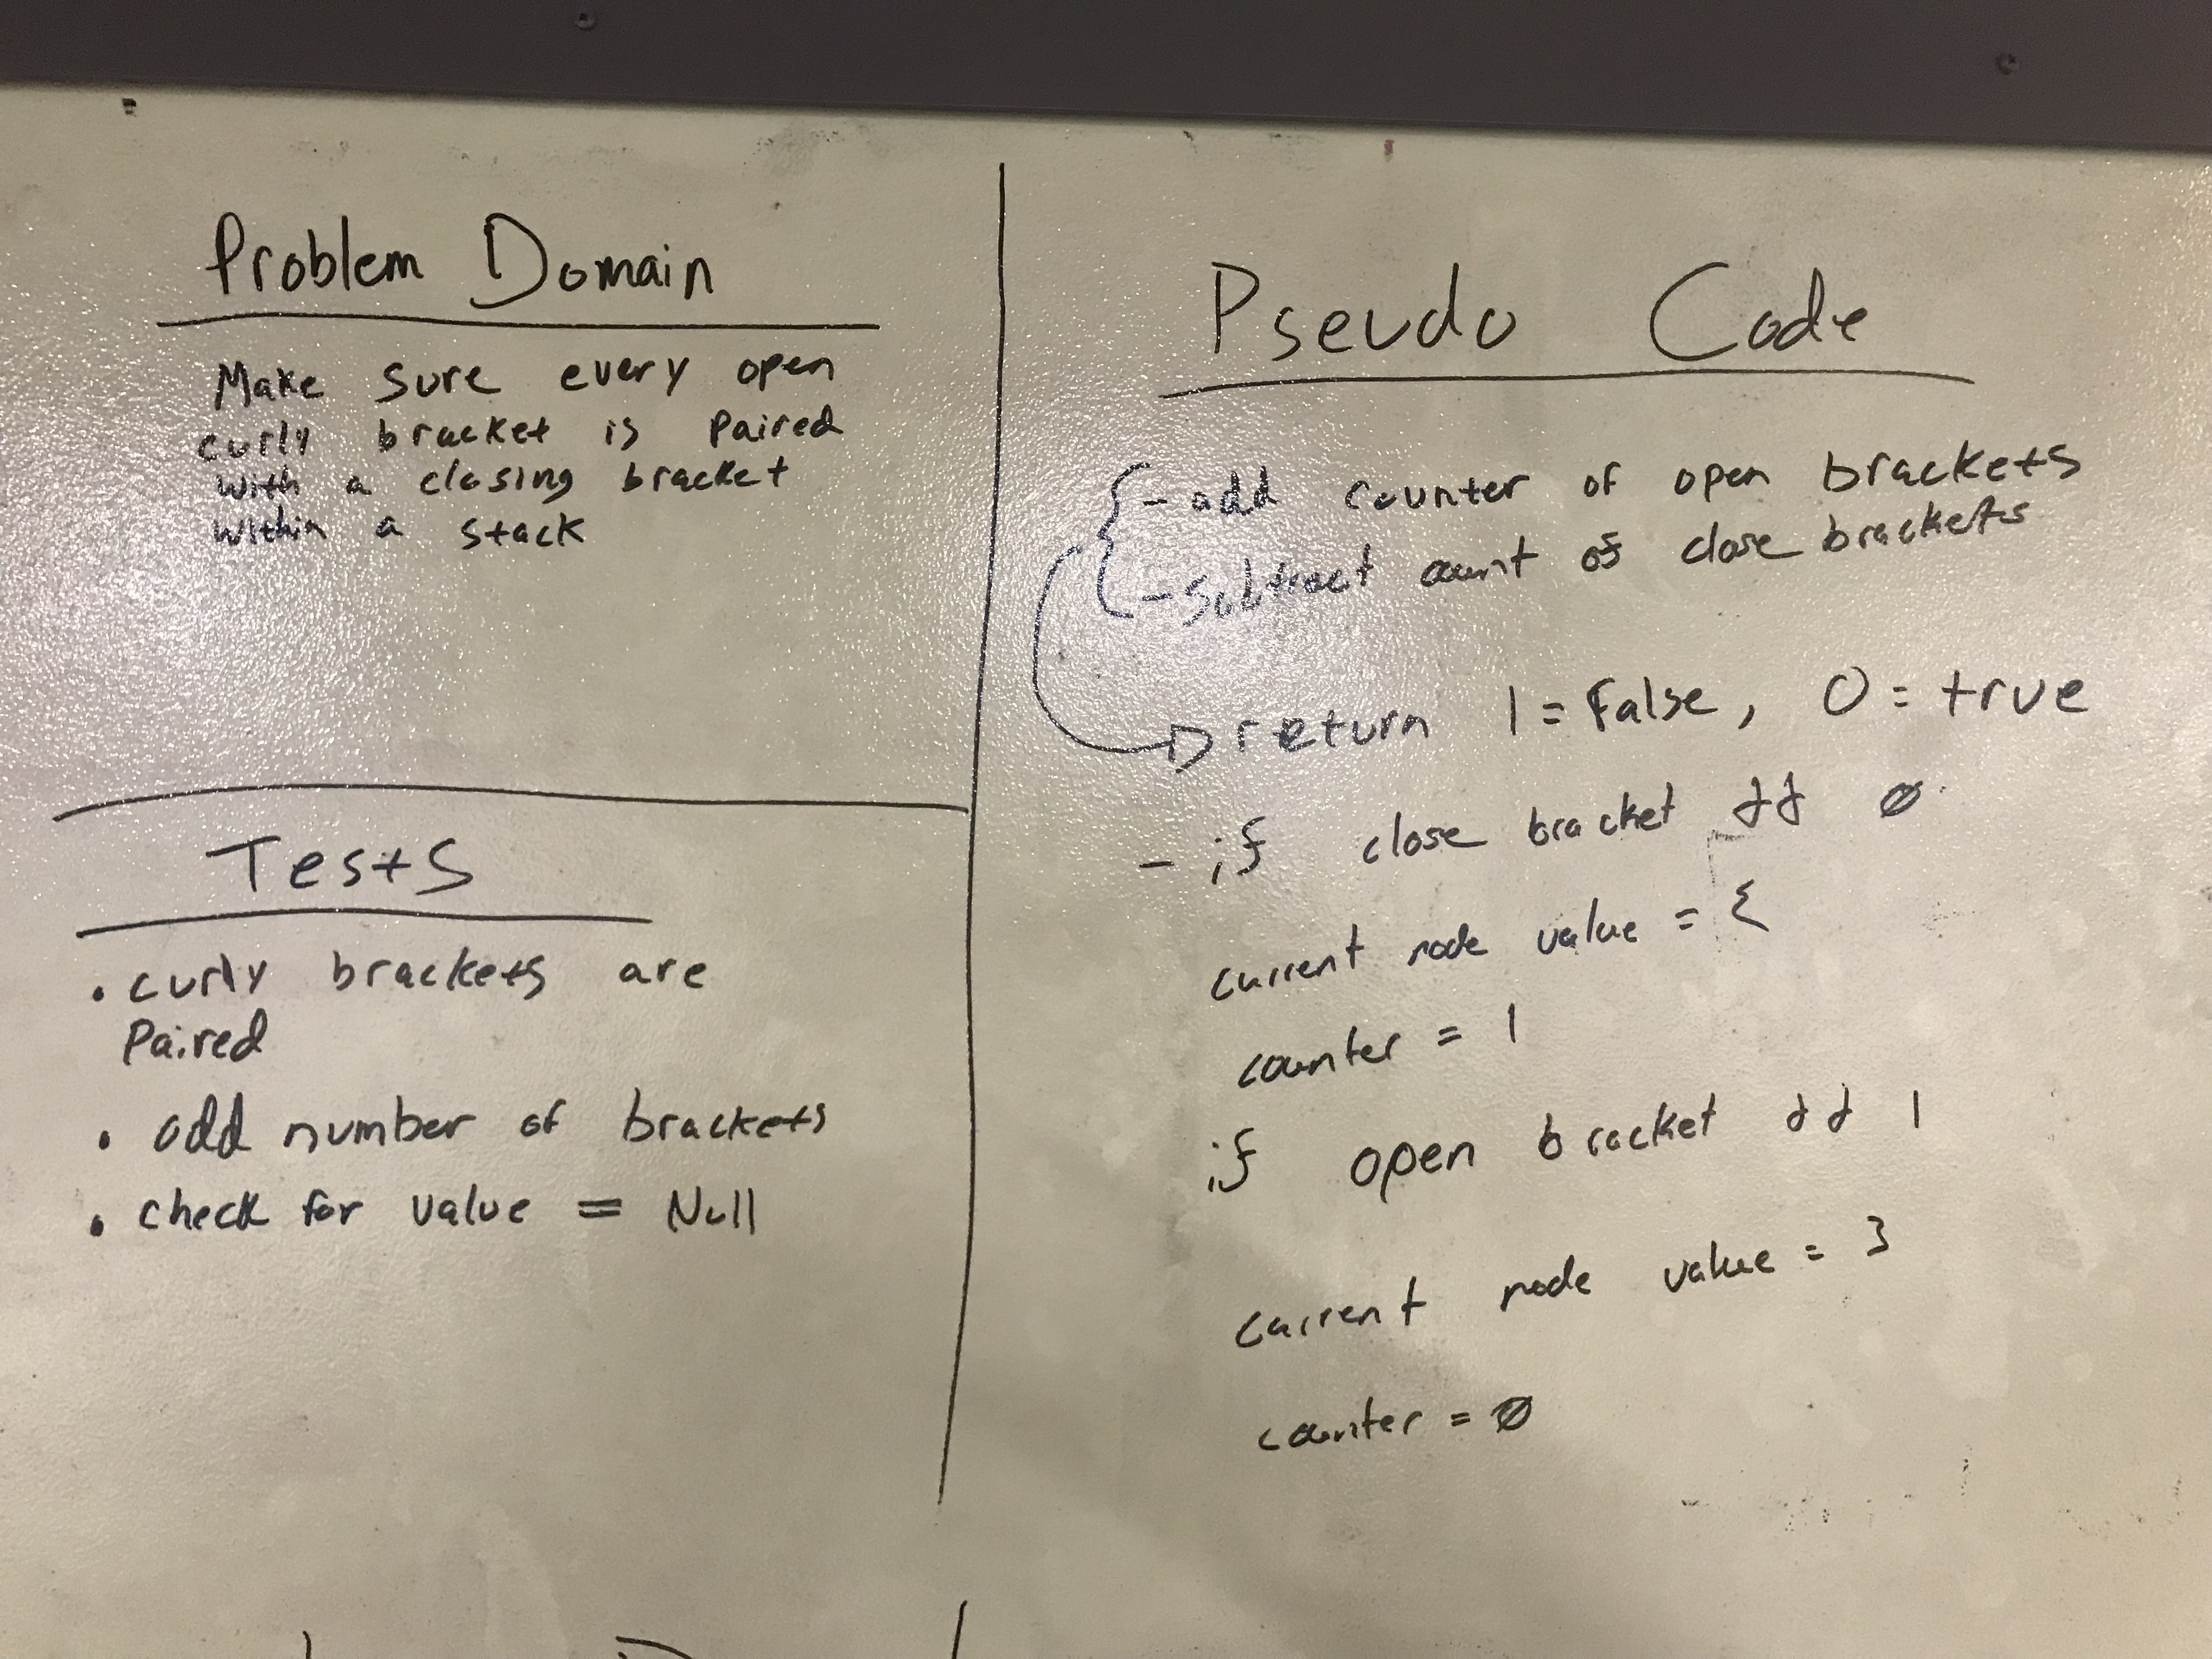 Problem Domain
Make sure every open
curly bracket is paired
with a closing bracket
within a stack
Tests
• curly brackets are
Paired
• odd number of brackets
• check for value = Null
Pseudo Code
{ - add counter of open brackets
- subtract count of close brackets
return 1 = False, 0 = true
- if close bracket && 0
current node value = {
counter = 1
if open bracket && 1
current node value = }
counter = 0